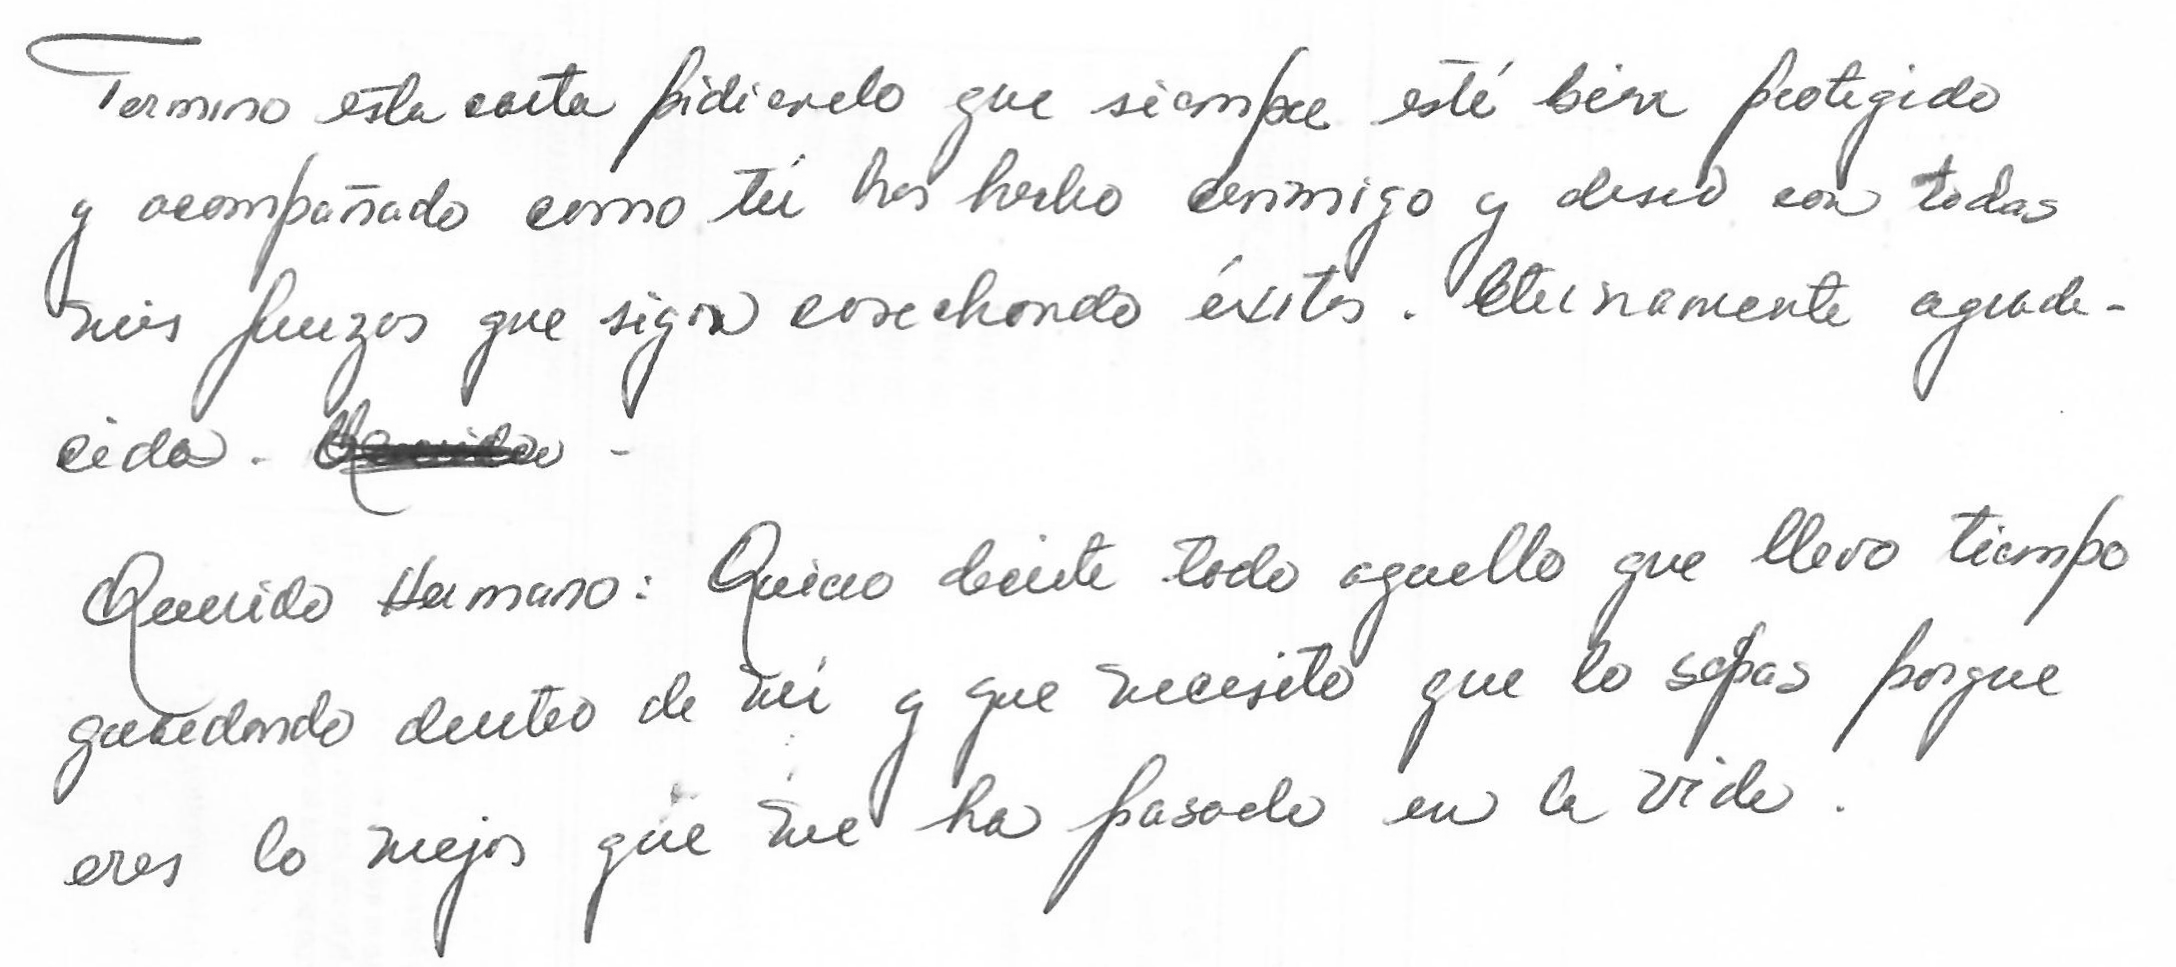 Termino esta carta pidiendo que siempre esté bien protegido
y acompañado como tú has hecho conmigo y deseo con todas
mis fuerzas que sigan cosechando éxitos. Eternamente agrade-
cida. -
Querido Hermano: Quiero decirte todo aquello que llevo tiempo
guardando dentro de mí y que necesito que lo sepas porque
eres lo mejor que me ha pasado en la vida.